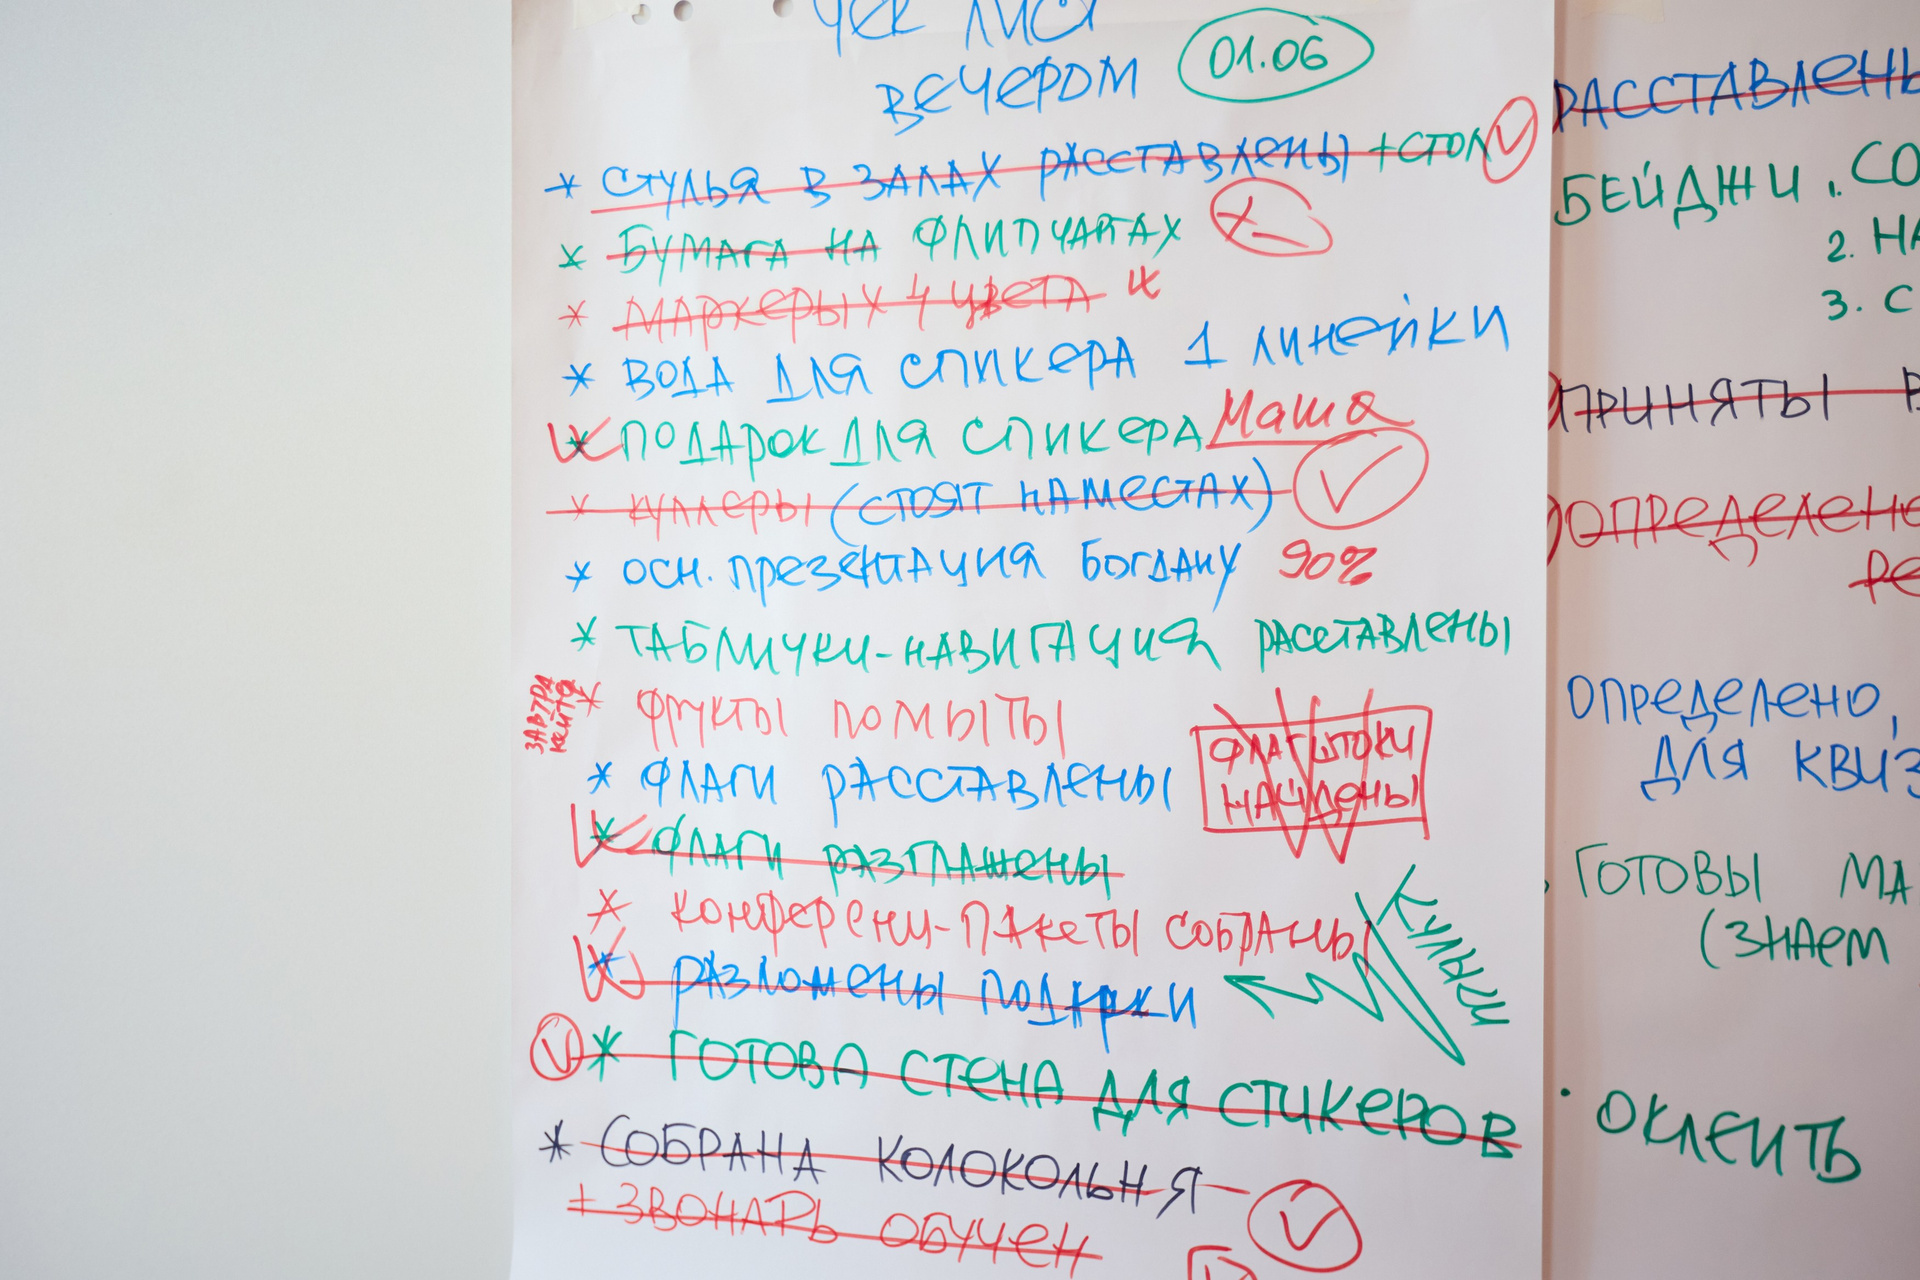 ЧЕК ЛИСТ
ВЕЧЕРОМ 01.06
* СТУЛЬЯ В ЗАЛАХ РАССТАВЛЕНЫ + СТОЛ
* БУМАГА НА ФЛИПЧАРТАХ
* МАРКЕРЫ Х 4 ЦВЕТА
* ВОДА ДЛЯ СПИКЕРА 1 ЛИНЕЙКИ
* ПОДАРОК ДЛЯ СПИКЕРА Маша
* КУЛЛЕРЫ (СТОЯТ НА МЕСТАХ)
* ОСН. ПРЕЗЕНТАЦИЯ БОГДАНУ 90%
* ТАБЛИЧКИ-НАВИГАЦИЯ РАССТАВЛЕНЫ
ЗАВТРА КЕЙТО
* ФРУКТЫ ПОМЫТЫ
* ФЛАГИ РАССТАВЛЕНЫ
ФЛАГШТОКИ
НАЙДЕНЫ
* ФЛАГИ РАЗГЛАЖЕНЫ
* КОНФЕРЕНЦ-ПАКЕТЫ СОБРАНЫ
КУЛЬКИ
* РАЗЛОМЕНЫ ПОДАРКИ
* ГОТОВА СТЕНА ДЛЯ СТИКЕРОВ
* СОБРАНА КОЛОКОЛЬНЯ
+ ЗВОНАРЬ ОБУЧЕН
РАССТАВЛЕНЫ
БЕЙДЖИ 1. СО
2. НА
3. С
ПРИНЯТЫ
ОПРЕДЕЛЕНО
РЕ
ОПРЕДЕЛЕНО,
ДЛЯ КВИЗ
ГОТОВЫ МА
(ЗНАЕМ
· ОКЛЕИТЬ